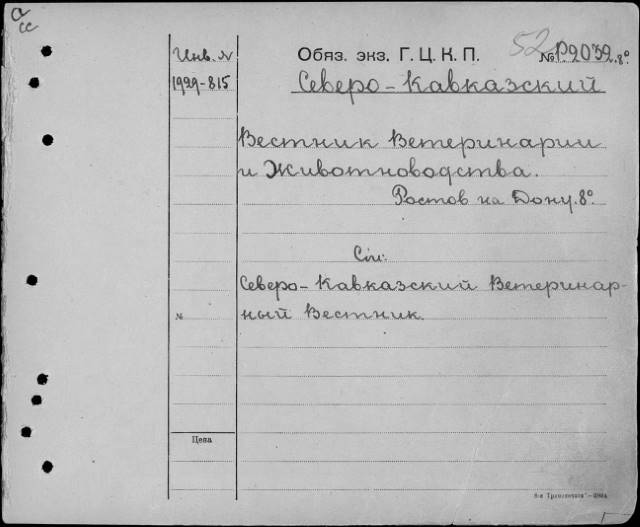 а/сс
Инв. №
1929-815
Обяз. экз. Г. Ц. К. П.
52
№ Р2039.8º
Северо-Кавказский
Вестник Ветеринарии
и Животноводства.
Ростов на Дону. 8º.
См:
Северо-Кавказский Ветеринар-
№
ный Вестник.
Цена